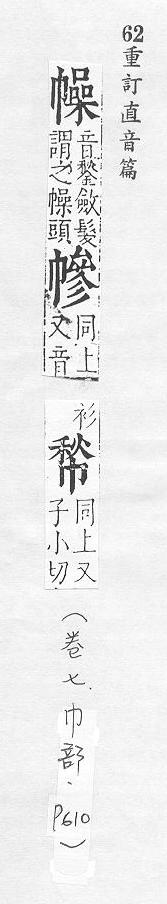 62 重訂直音篇
幧
音鍫斂髮
謂之幧頭
幓
同上
又音
衫
同上又
子小切
（卷七．巾部．P610）